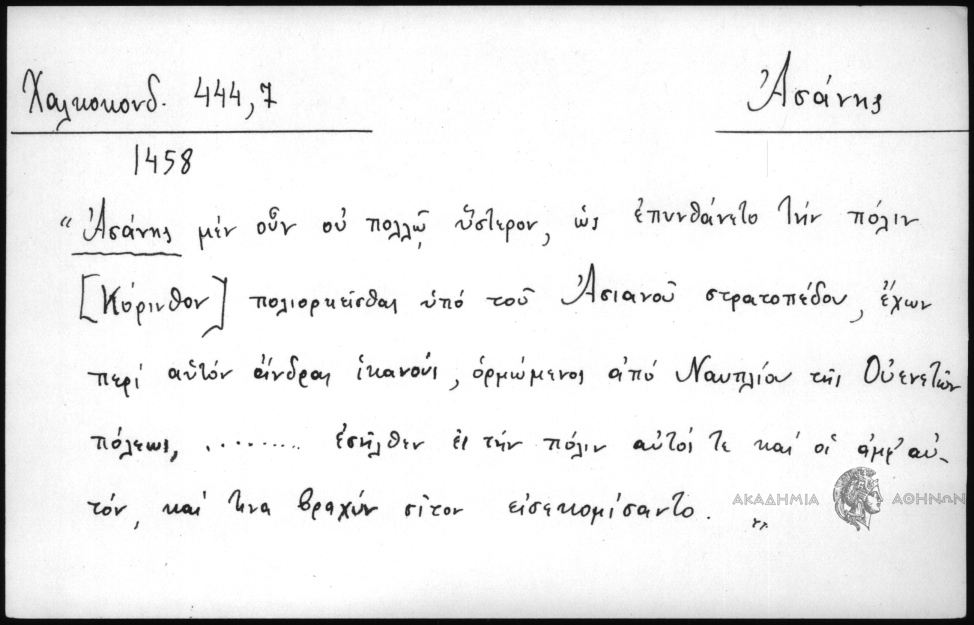 Χαλκοκονδ. 444,7
Ἀσάνης
1458
"Ἀσάνης μέν οὖν οὐ πολλῷ ὕστερον, ὡς ἐπυνθάνετο τήν πόλιν
[Κόρινθον] πολιορκεῖσθαι ὑπό τοῦ Ἀσιανοῦ στρατοπέδου, ἔχων
περί αὑτόν ἄνδρας ἱκανούς, ὁρμώμενος ἀπό Ναυπλίου τῆς Οὐενετῶν
πόλεως, .......... ἐσῆλθεν ἐς τήν πόλιν αὐτός τε καί οἱ ἀμφ' αὐ-
τόν, καί τινα βραχύν σῖτον εἰσεκομίσαντο.
ΑΚΑΔΗΜΙΑ ΑΘΗΝΩΝ